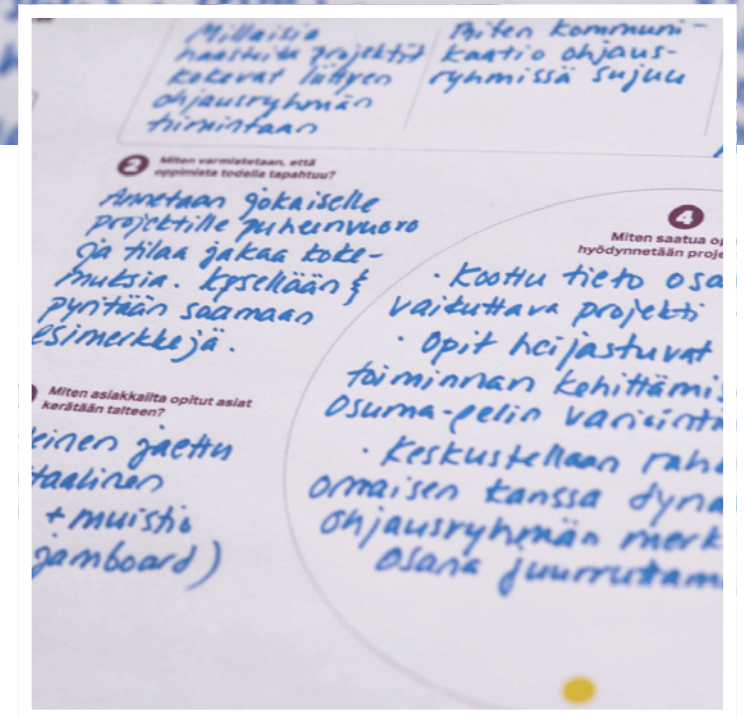 Millaisia
haasteita projektit
kokevat liittyen
ohjausryhmän
toimintaan
Miten kommuni-
kaatio ohjaus-
ryhmissä sujuu
2 Miten varmistetaan, että
oppimista todella tapahtuu?
Annetaan jokaiselle
projektille puheenvuoro
ja tilaa jakaa koke-
muksia. Kysellään &
pyritään saamaan
esimerkkejä.
Miten asiakkailta opitut asiat
kerätään talteen?
einen jaettu
taalinen
+ muistio
jamboard)
4
Miten saatua op
hyödynnetään proje
· Koottu tieto osa
vaikuttava projekti
· Opit heijastuvat
toiminnan kehittämis
Osuma-pelin
· Keskustellaan rah
omaisen kanssa dyna
ohjausryhmän merk
osana juurruttam